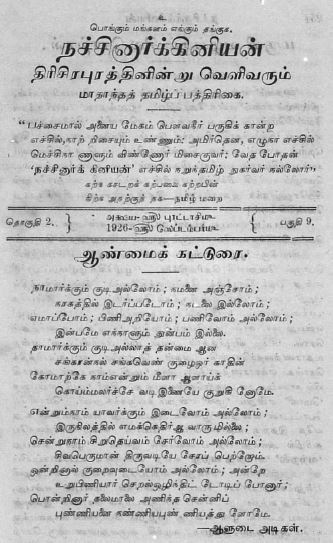 உ
பொங்கும் மங்களம் எங்கும் தங்குக.
நச்சினார்க்கினியன்
திரிசிரபுரத்தினின்று வெளிவரும்
மாதாந்தத் தமிழ்ப் பத்திரிகை.
“பச்சைமால் அனைய மேகம் பௌவநீர் பருகிக் கான்ற
எச்சில்,நாற் றிசையும் உண்ணும்; அமிர்தென, எழுகா எச்சில்
மெச்சிநா ணாளும் விண்ணோர் மிசைகுவர்; வேத போதன்
‘நச்சினார்க் கினியன்’ எச்சில் நறுந்தமிழ் நுகர்வர் நல்லோர்”
கற்க கசடறக் கற்பவை கற்றபின்
நிற்க அதற்குத் தக—நமிழ் மறை
தொகுதி 2. } அக்ஷய-௵ புரட்டாசி௴ { பகுதி 9.
1926-௵ ஸெப்டம்பர்௴
ஆண்மைக் கட்டுரை.
நாமார்க்கும் குடிஅல்லோம்; நமனை அஞ்சோம்;
நரகத்தில் இடர்ப்படோம்; நடலை இல்லோம்;
ஏமாப்போம்; பிணிஅறியோம்; பணிவோம் அல்லோம்;
இன்பமே எந்நாளும் துன்பம் இல்லை.
தாமார்க்கும் குடிஅல்லாத் தன்மை ஆன
சங்கரன்நல் சங்கவெண் குழைஓர் காதின்
கோமாற்கே நாம்என்றும் மீளா ஆளாய்க்
கொய்ம்மலர்ச்சே வடிஇணையே குறுகி னோமே.
என்றும்நாம் யாவர்க்கும் இடைவோம் அல்லோம்;
இருநிலத்தில் எமக்கெதிர்ஆ வாருமில்லை;
சென்றுநாம் சிறுதெய்வம் சேர்வோம் அல்லோம்;
சிவபெருமான் திருவடியே சேரப் பெற்றோம்.
ஒன்றினால் குறைஉடையோம் அல்லோம்; அன்றே
உறுபிணியார் செறல்ஒழிந்திட் டோடிப் போனார்;
பொன்றினார் தலைமாலை அணிந்த சென்னிப்
புண்ணியனை நண்ணியபுண் ணியத்து ளோமே.
—ஆளுடை அடிகள்.